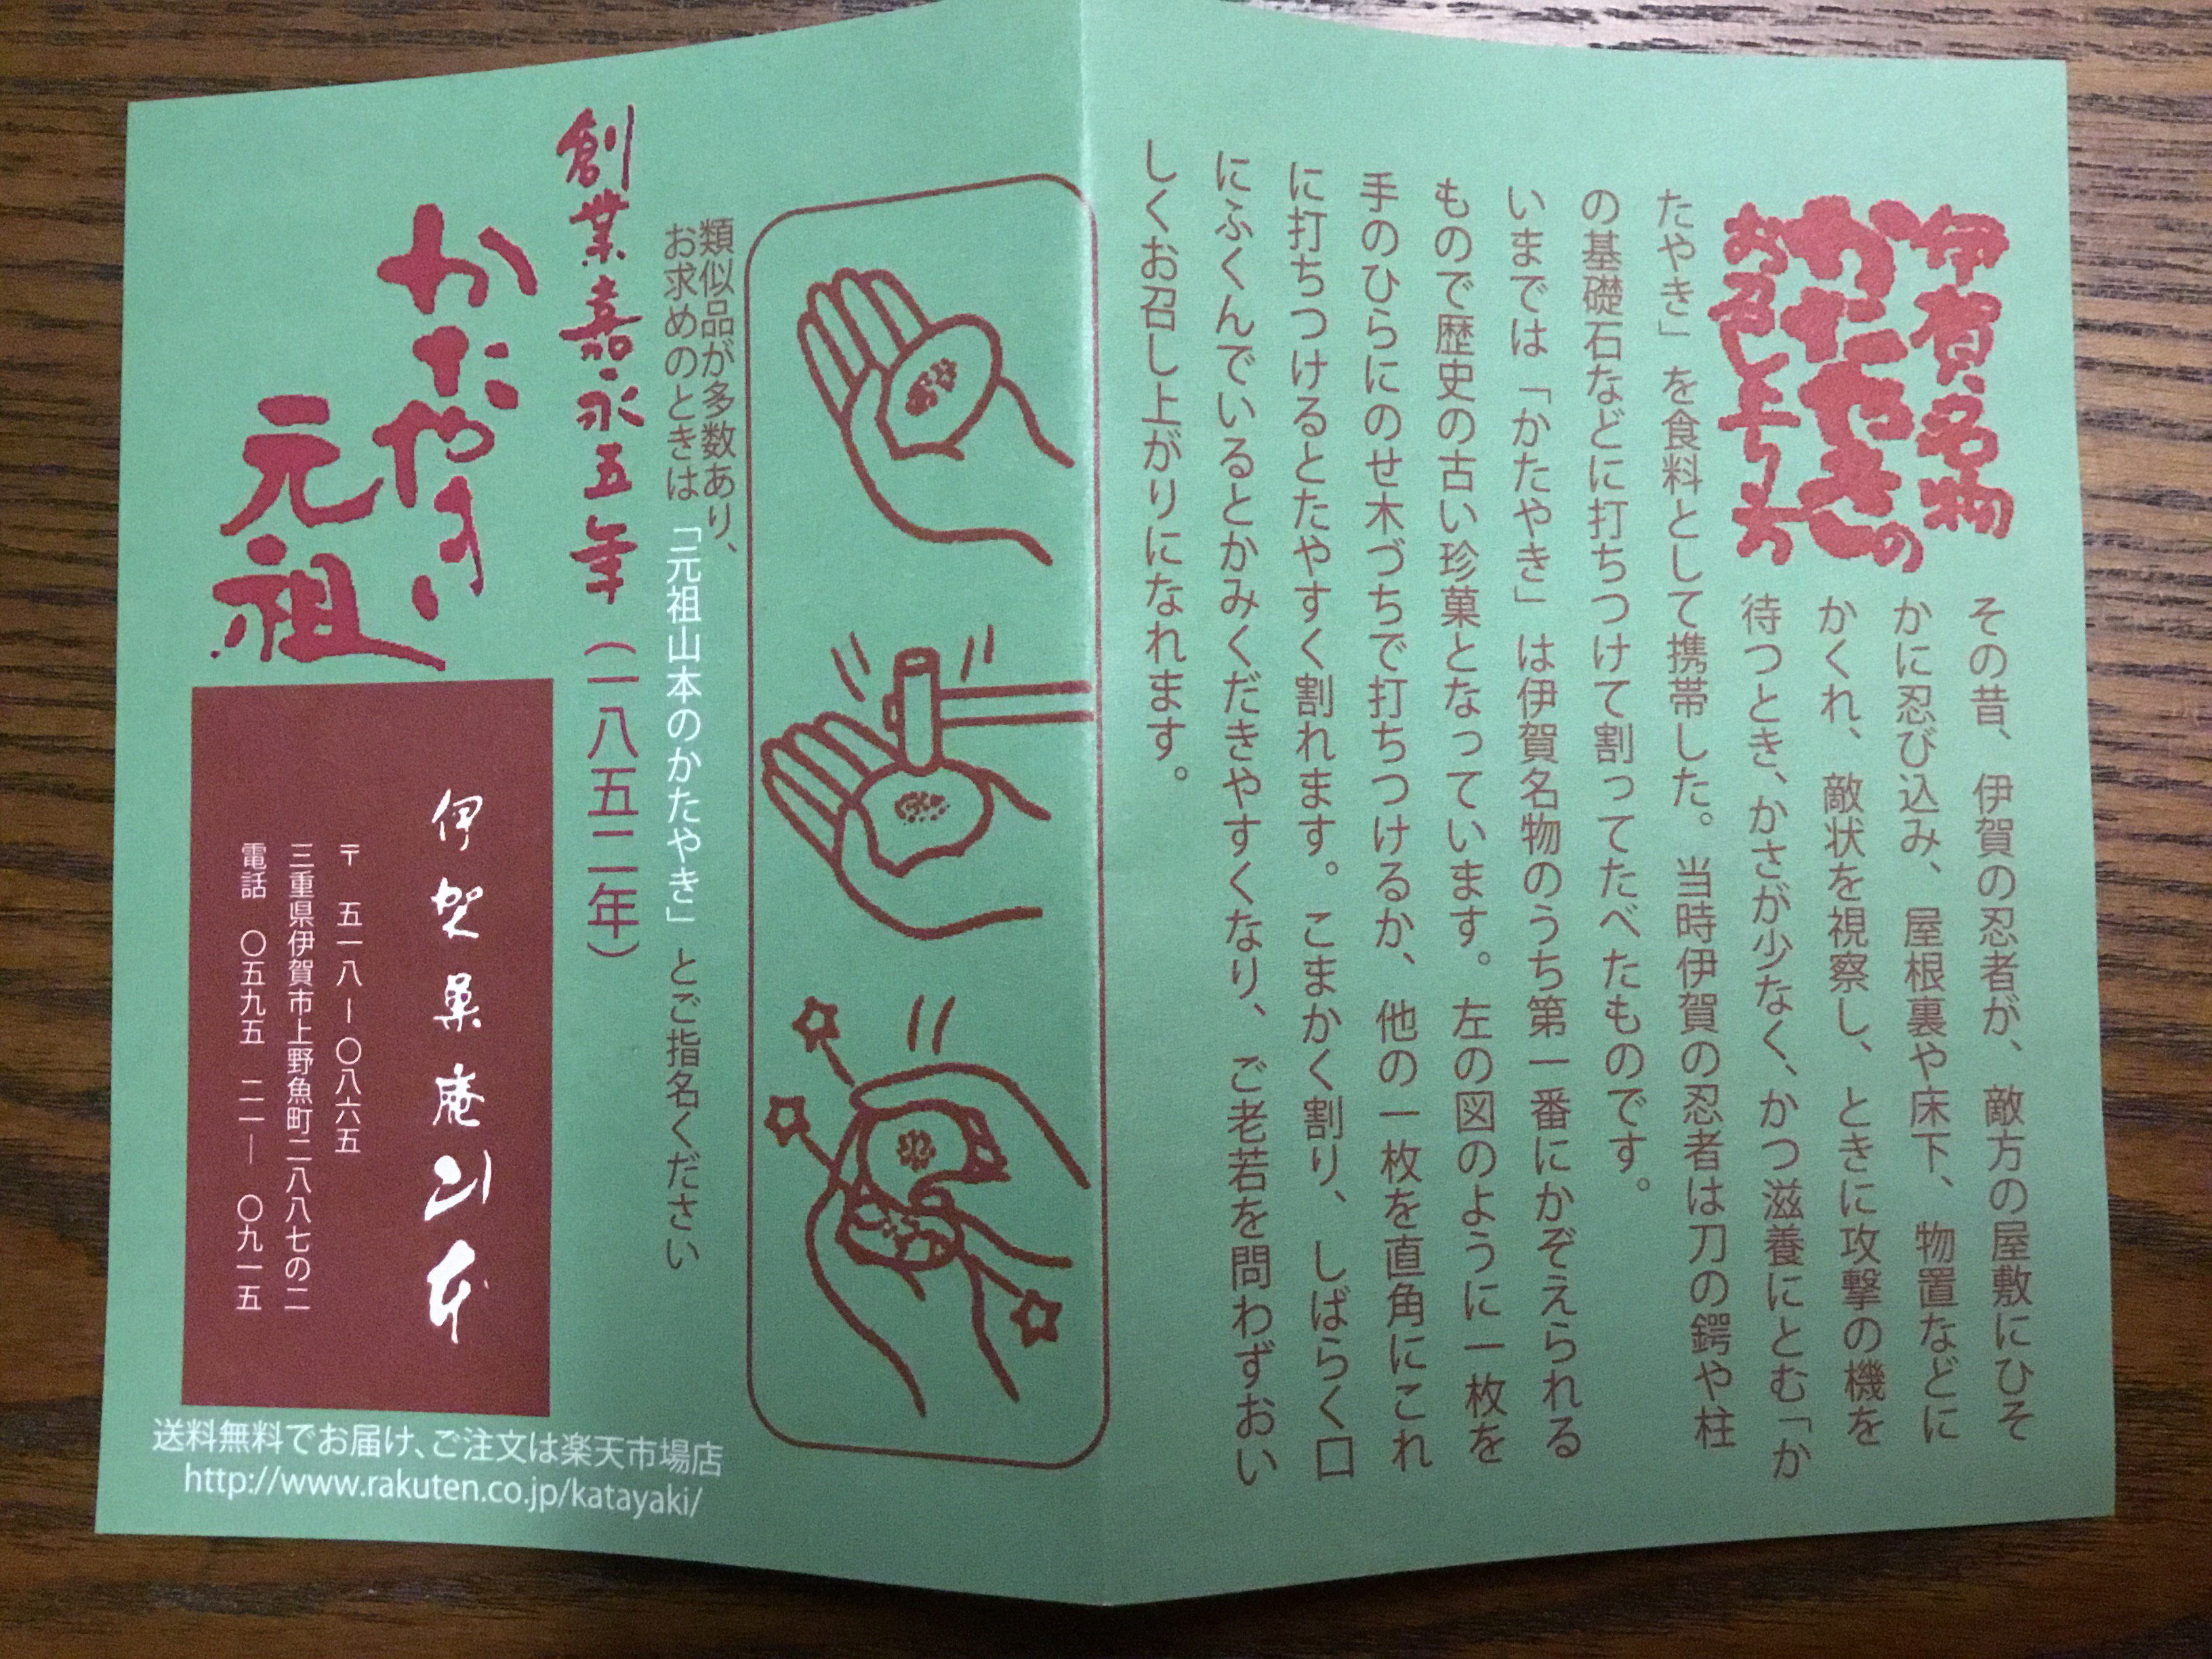 伊賀名物
かたやきの
お召し上り方
その昔、伊賀の忍者が、敵方の屋敷にひそ
かに忍び込み、屋根裏や床下、物置などに
かくれ、敵状を視察し、ときに攻撃の機を
待つとき、かさが少なく、かつ滋養にとむ「か
たやき」を食料として携帯した。当時伊賀の忍者は刀の鍔や柱
の基礎石などに打ちつけて割ってたべたものです。
いまでは「かたやき」は伊賀名物のうち第一番にかぞえられる
もので歴史の古い珍菓となっています。左の図のように一枚を
手のひらにのせ木づちで打ちつけるか、他の一枚を直角にこれ
に打ちつけるとたやすく割れます。こまかく割り、しばらく口
にふくんでいるとかみくだきやすくなり、ご老若を問わずおい
しくお召し上がりになれます。
類似品が多数あり、
お求めのときは「元祖山本のかたやき」とご指名ください
創業嘉永五年(一八五二年)
かたやき
元祖
伊賀菓庵山本
〒五一八ー〇八六五
三重県伊賀市上野魚町二八八七の二
電話 〇五九五 二一ー〇九一五
送料無料でお届け、ご注文は楽天市場店
http://www.rakuten.co.jp/katayaki/